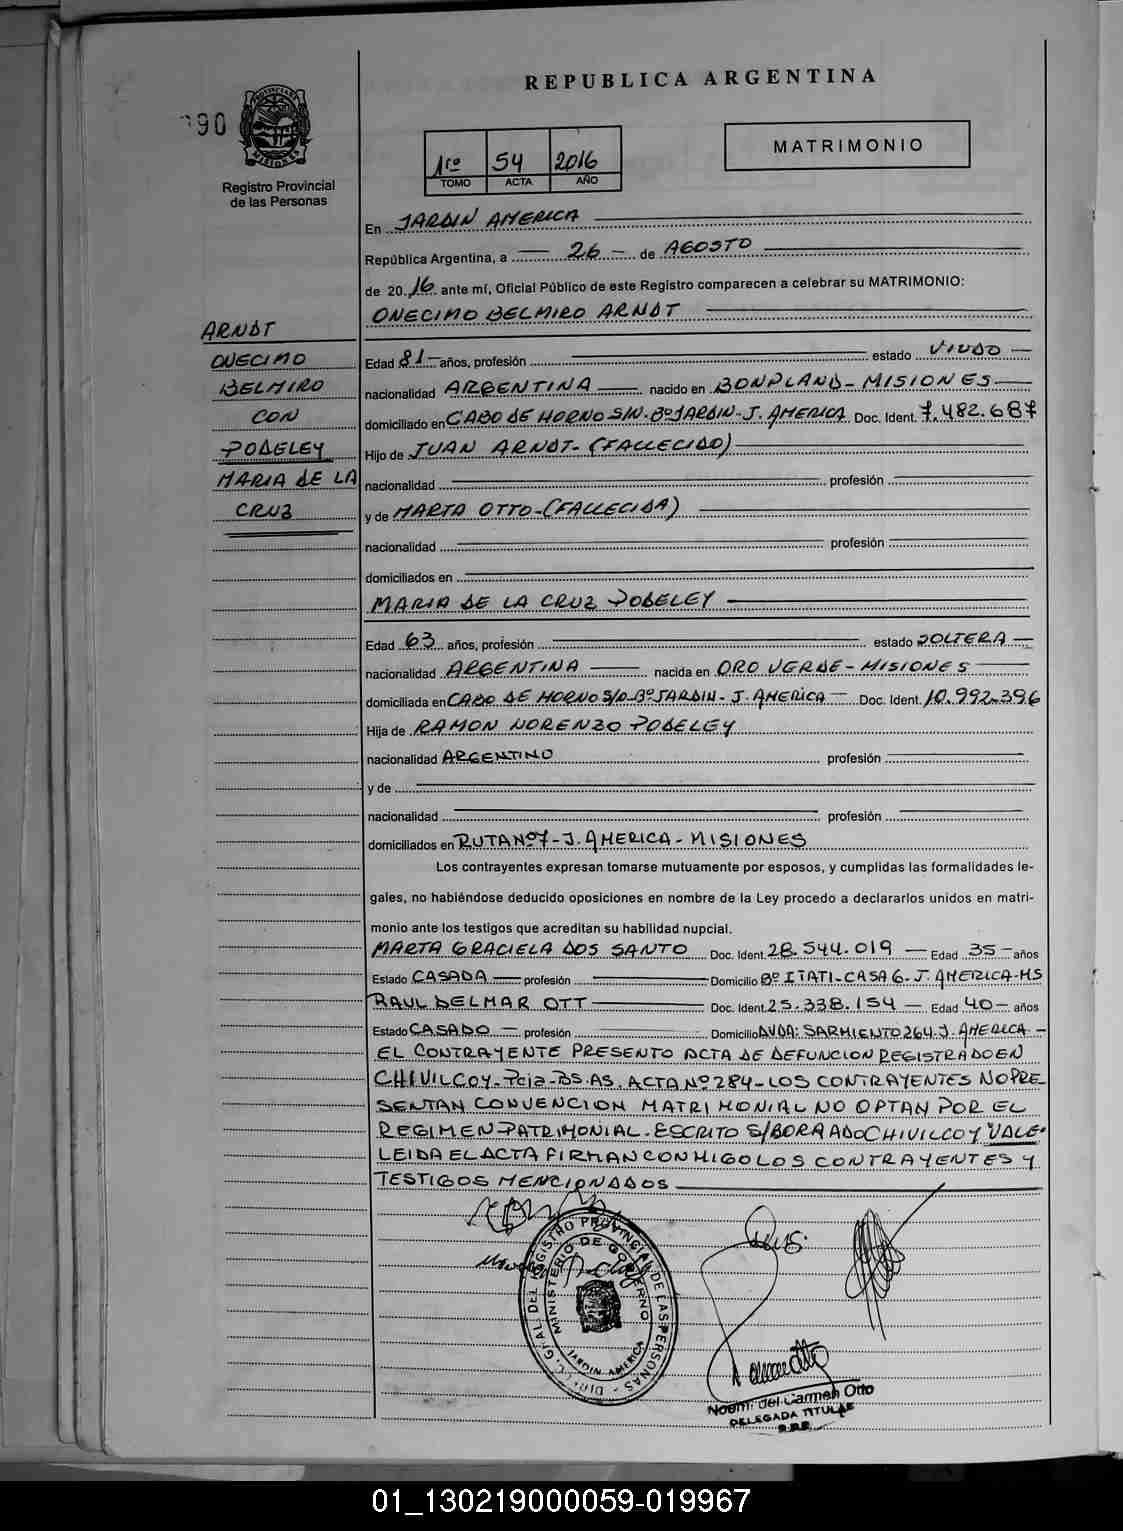 REPUBLICA ARGENTINA
90
PROVINCIA DE MISIONES
Registro Provincial
de las Personas
1ro 54 2016
TOMO ACTA AÑO
MATRIMONIO
ARNDT
ONECIMO
BELMIRO
CON
PODELEY
MARIA DE LA
CRUZ
En JARDIN AMERICA
República Argentina, a 26 de AGOSTO
de 2016 ante mí, Oficial Público de este Registro comparecen a celebrar su MATRIMONIO:
ONECIMO BELMIRO ARNDT
Edad 81 años, profesión estado VIUDO
nacionalidad ARGENTINA nacido en BONPLAND - MISIONES
domiciliado en CABO DE HORNO S/N. Bº JARDIN - J. AMERICA Doc. Ident. 7.482.687
Hijo de JUAN ARNDT - (FALLECIDO)
nacionalidad profesión
y de MARTA OTTO - (FALLECIDA)
nacionalidad profesión
domiciliados en
MARIA DE LA CRUZ PODELEY
Edad 63 años, profesión estado SOLTERA
nacionalidad ARGENTINA nacida en ORO VERDE - MISIONES
domiciliada en CABO DE HORNO S/N Bº JARDIN - J. AMERICA Doc. Ident. 10.992.396
Hija de RAMON NORENZO PODELEY
nacionalidad ARGENTINO profesión
y de
nacionalidad profesión
domiciliados en RUTA Nº 7 - J. AMERICA - MISIONES
Los contrayentes expresan tomarse mutuamente por esposos, y cumplidas las formalidades le-
gales, no habiéndose deducido oposiciones en nombre de la Ley procedo a declararlos unidos en matri-
monio ante los testigos que acreditan su habilidad nupcial.
MARTA GRACIELA DOS SANTO Doc. Ident. 28.544.019 Edad 35 años
Estado CASADA profesión Domicilio Bº ITATI - CASA 6 - J. AMERICA - MS
RAUL DELMAR OTT Doc. Ident. 25.338.154 Edad 40 años
Estado CASADO profesión Domicilio AVDA: SARMIENTO 264. J. AMERICA -
EL CONTRAYENTE PRESENTO ACTA DE DEFUNCION REGISTRADO EN
CHIVILCOY - Pcia - BS. AS. ACTA Nº 284 - LOS CONTRAYENTES NO PRE-
SENTAN CONVENCION MATRIMONIAL NO OPTAN POR EL
REGIMEN PATRIMONIAL. ESCRITO S/BORRADO CHIVILCOY "VALE"
LEIDA EL ACTA FIRMAN CONMIGO LOS CONTRAYENTES Y
TESTIGOS MENCIONADOS
DIRECC. GRAL. DEL REGISTRO PROVINCIAL DE LAS PERSONAS
MINISTERIO DE GOBIERNO
JARDIN AMERICA
Noemi del Carmen Otto
DELEGADA TITULAR
01_130219000059-019967